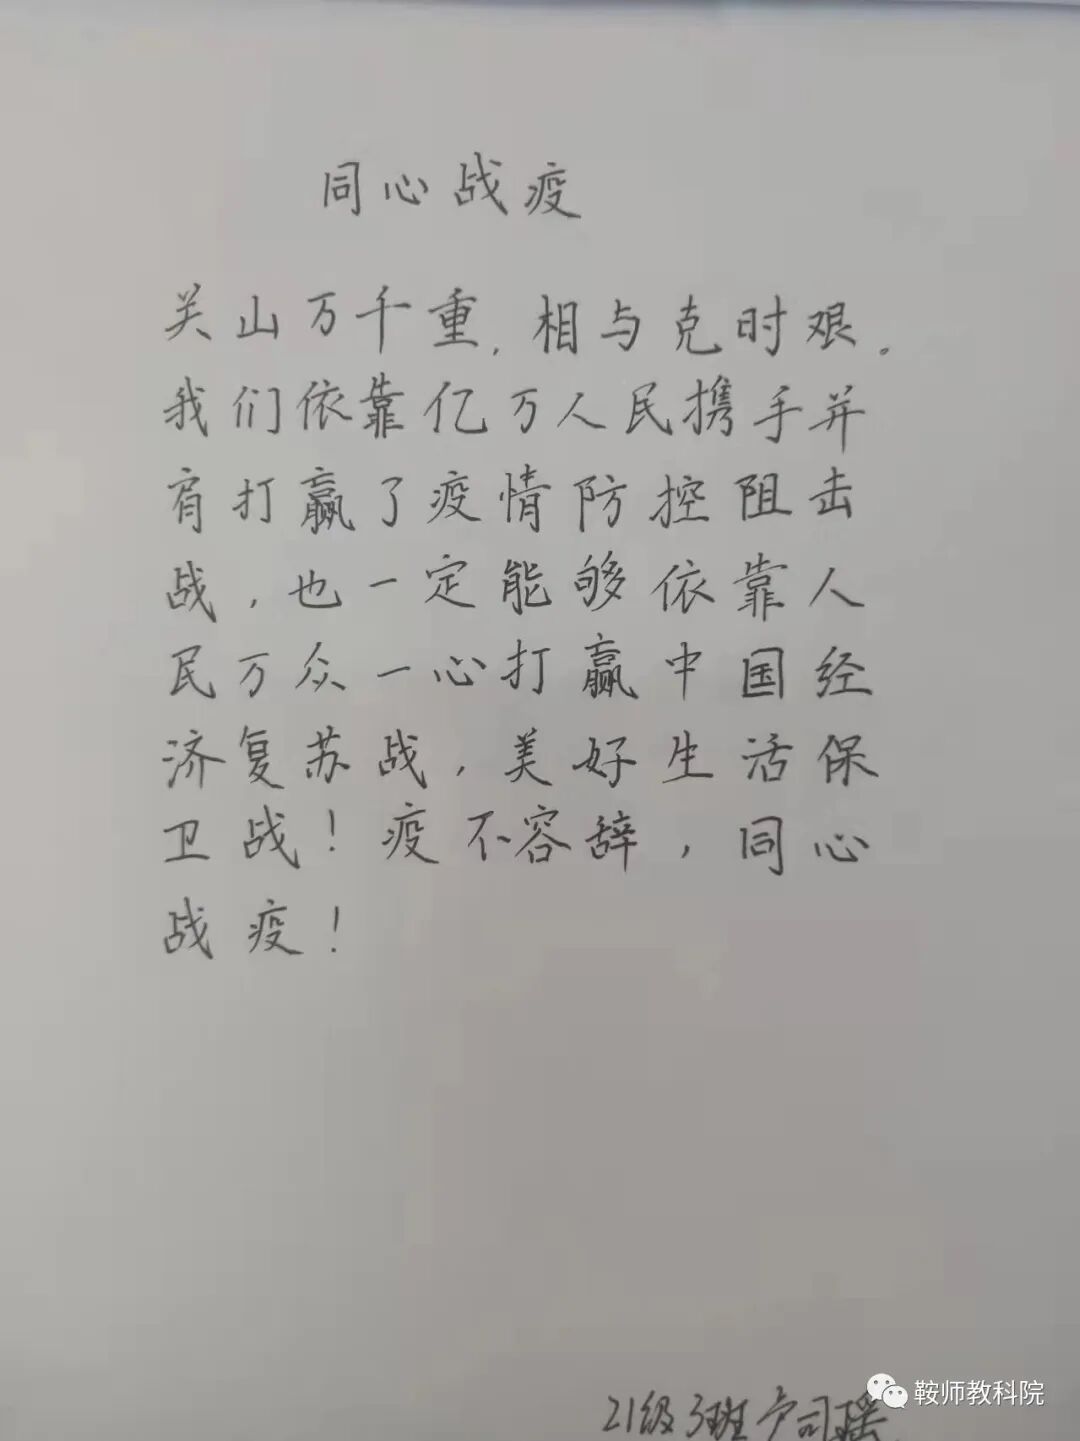 同心战疫
关山万千重，相与克时艰。
我们依靠亿万人民携手并
肩打赢了疫情防控阻击
战，也一定能够依靠人
民万众一心打赢中国经
济复苏战，美好生活保
卫战！疫不容辞，同心
战疫！
鞍师教科院
21级3班卢司瑶